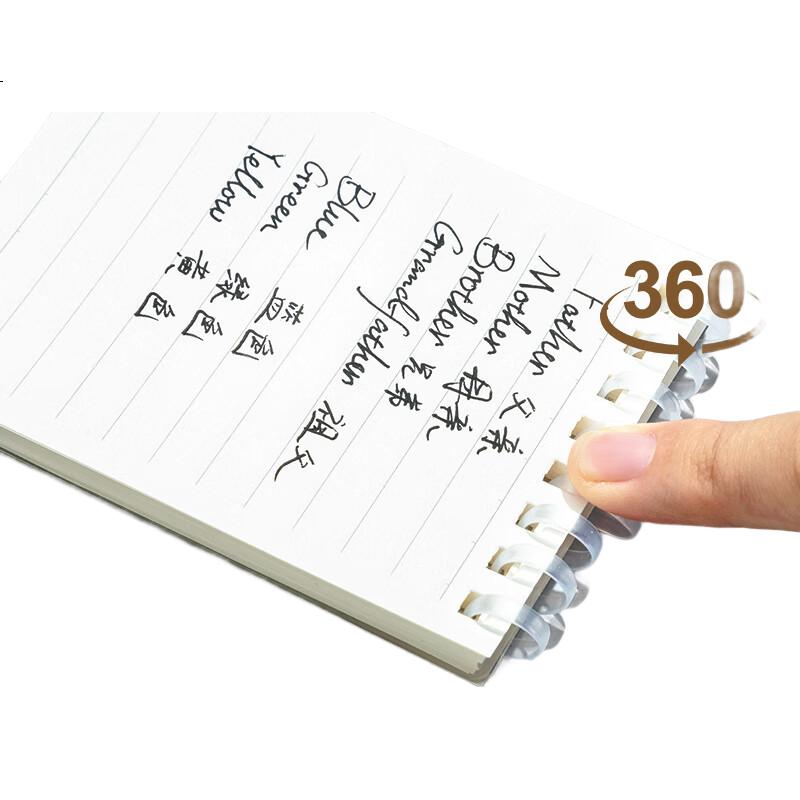 360
Father 父亲
Mother 母亲
Brother 兄弟
Grandfather 祖父
Blue 蓝色
Green 绿色
Yellow 黄色